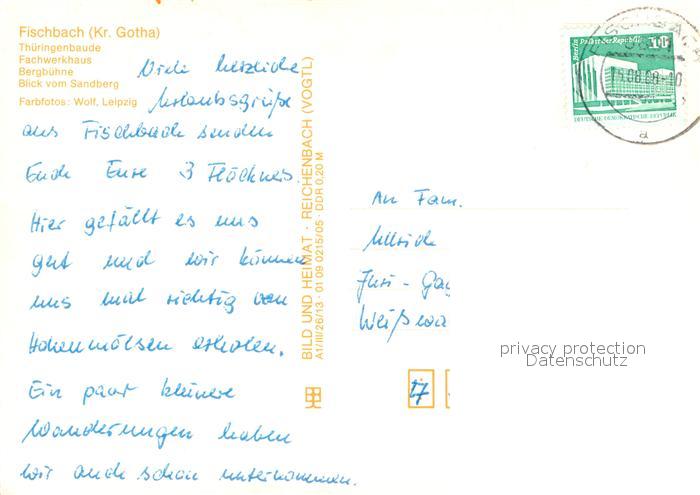 Fischbach (Kr. Gotha)
Thüringenbaude
Fachwerkhaus
Bergbühne
Blick vom Sandberg
Farbfotos: Wolf, Leipzig
Viele herzliche
Urlaubsgrüße
aus Fischbach senden
Euch Eure 3 Flöckners.
Hier gefällt es uns
gut und wir können
uns mal richtig von
Hohenmölsen erholen.
Ein paar kleinere
Wanderungen haben
wir auch schon unternommen.
BILD UND HEIMAT · REICHENBACH (VOGTL)
A1/III/26/13 · 01 09 0215/05 · DDR 0,20 M
Berlin Palast der Republik 10
DEUTSCHE DEMOKRATISCHE REPUBLIK
a
An Fam.
Ulrich
Juri-Gag
Weißwa
privacy protection
Datenschutz